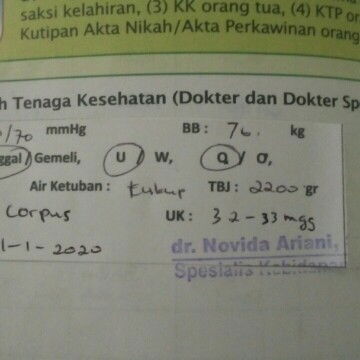 saksi kelahiran, (3) KK orang tua, (4) KTP or
Kutipan Akta Nikah/Akta Perkawinan orang
h Tenaga Kesehatan (Dokter dan Dokter Sp
/70 mmHg BB: 76. kg
ggal/Gemeli, U / W, ♀/ ♂,
Air Ketuban: Cukup TBJ: 2200 gr
Corpus UK: 32-33 mgs
1-1-2020 dr. Novida Ariani,
Spesialis Kebidanan